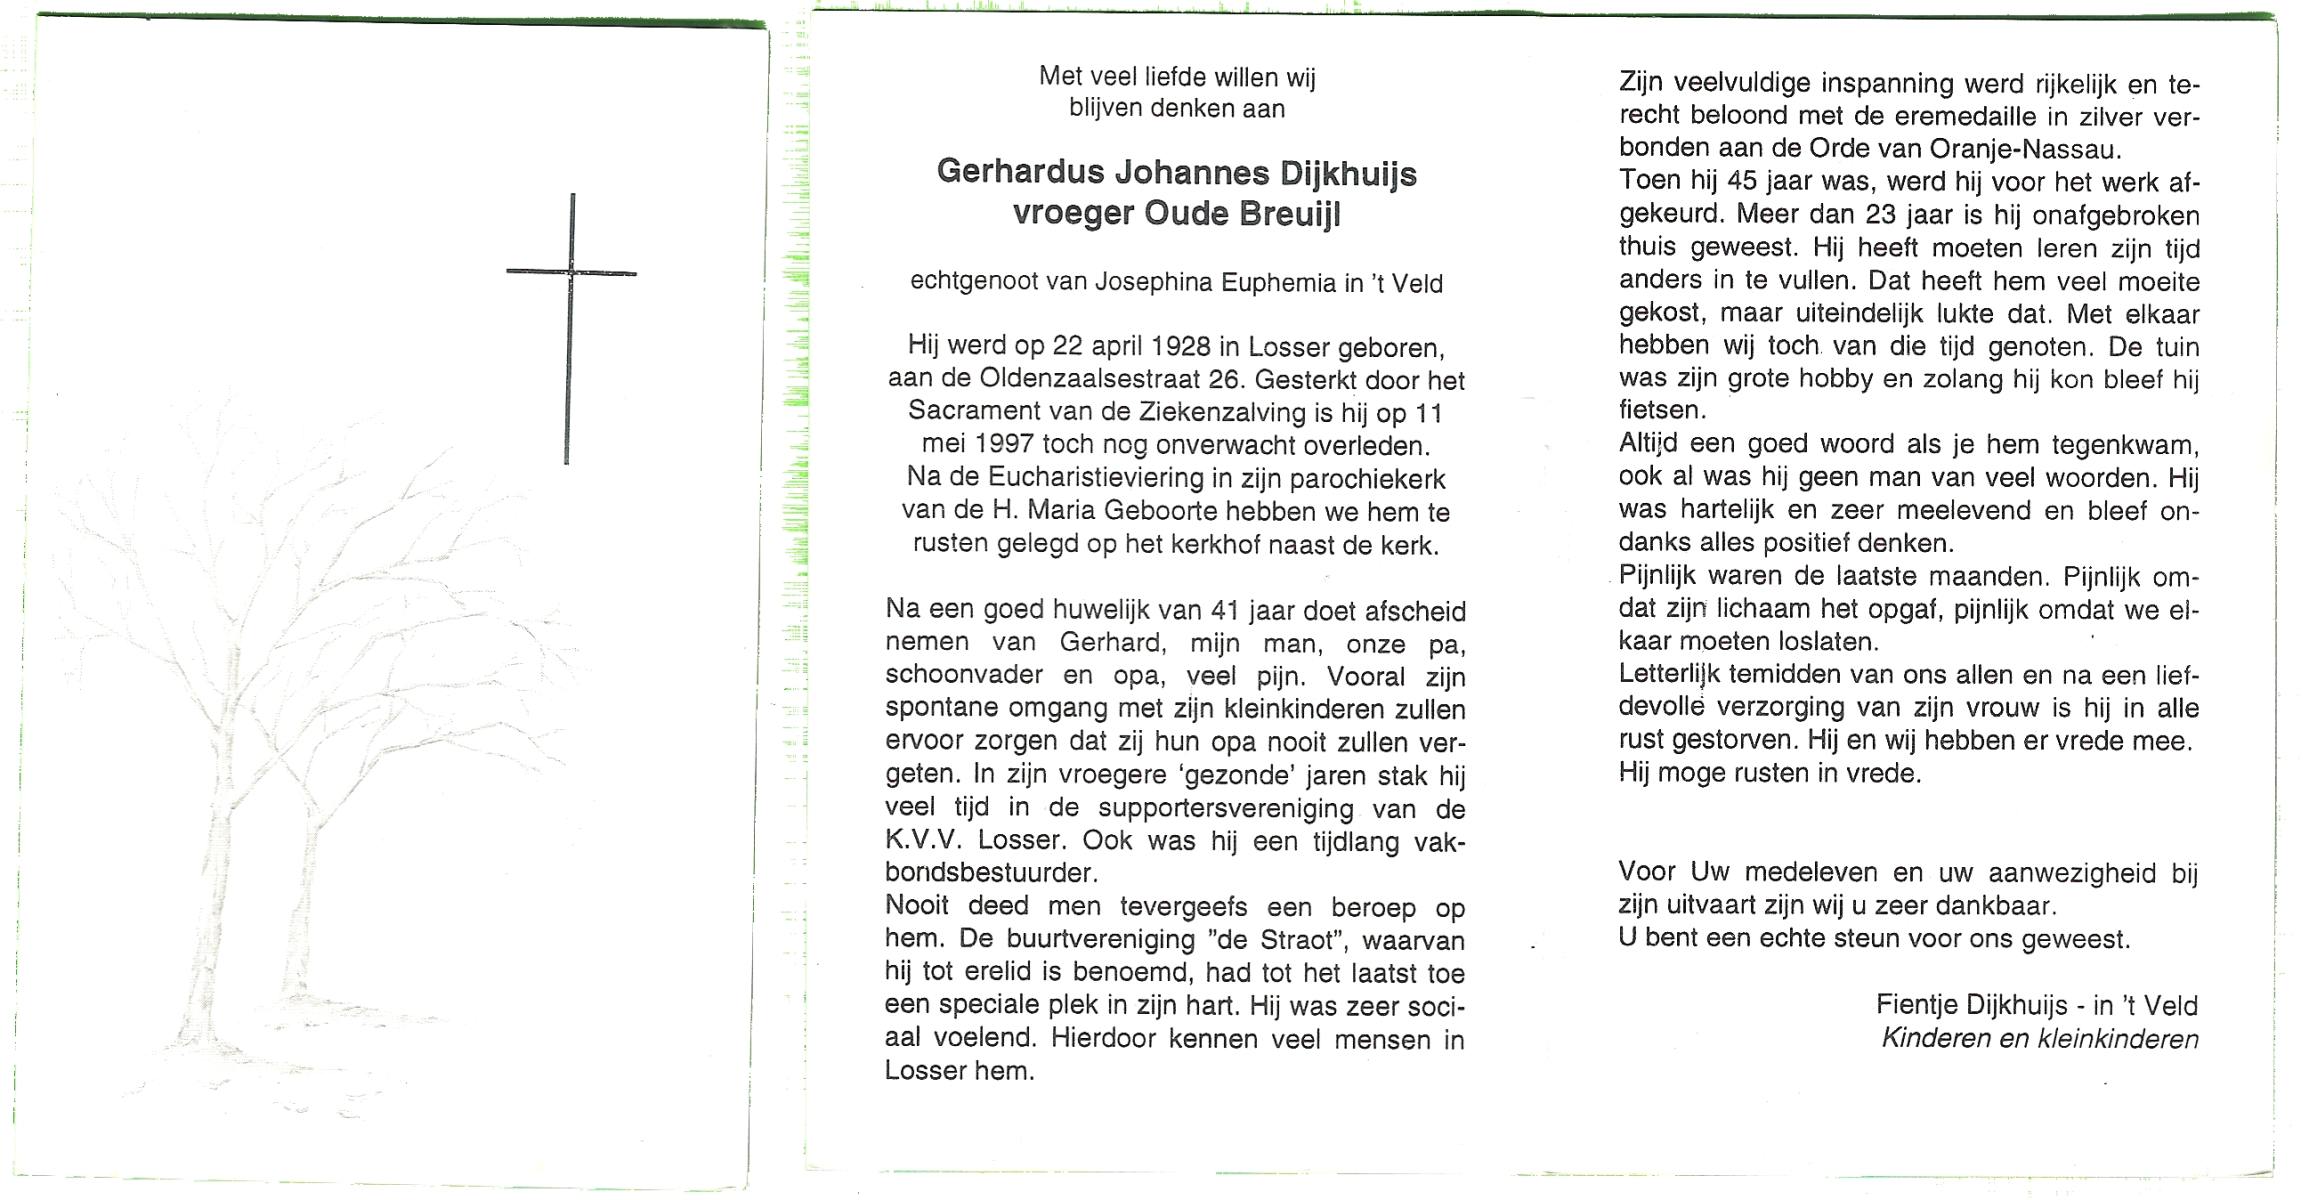 Met veel liefde willen wij
blijven denken aan
Gerhardus Johannes Dijkhuijs
vroeger Oude Breuijl
echtgenoot van Josephina Euphemia in 't Veld
Hij werd op 22 april 1928 in Losser geboren,
aan de Oldenzaalsestraat 26. Gesterkt door het
Sacrament van de Ziekenzalving is hij op 11
mei 1997 toch nog onverwacht overleden.
Na de Eucharistieviering in zijn parochiekerk
van de H. Maria Geboorte hebben we hem te
rusten gelegd op het kerkhof naast de kerk.
Na een goed huwelijk van 41 jaar doet afscheid
nemen van Gerhard, mijn man, onze pa,
schoonvader en opa, veel pijn. Vooral zijn
spontane omgang met zijn kleinkinderen zullen
ervoor zorgen dat zij hun opa nooit zullen ver-
geten. In zijn vroegere 'gezonde' jaren stak hij
veel tijd in de supportersvereniging van de
K.V.V. Losser. Ook was hij een tijdlang vak-
bondsbestuurder.
Nooit deed men tevergeefs een beroep op
hem. De buurtvereniging "de Straot", waarvan
hij tot erelid is benoemd, had tot het laatst toe
een speciale plek in zijn hart. Hij was zeer soci-
aal voelend. Hierdoor kennen veel mensen in
Losser hem.
Zijn veelvuldige inspanning werd rijkelijk en te-
recht beloond met de eremedaille in zilver ver-
bonden aan de Orde van Oranje-Nassau.
Toen hij 45 jaar was, werd hij voor het werk af-
gekeurd. Meer dan 23 jaar is hij onafgebroken
thuis geweest. Hij heeft moeten leren zijn tijd
anders in te vullen. Dat heeft hem veel moeite
gekost, maar uiteindelijk lukte dat. Met elkaar
hebben wij toch van die tijd genoten. De tuin
was zijn grote hobby en zolang hij kon bleef hij
fietsen.
Altijd een goed woord als je hem tegenkwam,
ook al was hij geen man van veel woorden. Hij
was hartelijk en zeer meelevend en bleef on-
danks alles positief denken.
Pijnlijk waren de laatste maanden. Pijnlijk om-
dat zijn lichaam het opgaf, pijnlijk omdat we el-
kaar moeten loslaten.
Letterlijk temidden van ons allen en na een lief-
devolle verzorging van zijn vrouw is hij in alle
rust gestorven. Hij en wij hebben er vrede mee.
Hij moge rusten in vrede.
Voor Uw medeleven en uw aanwezigheid bij
zijn uitvaart zijn wij u zeer dankbaar.
U bent een echte steun voor ons geweest.
Fientje Dijkhuijs - in 't Veld
Kinderen en kleinkinderen